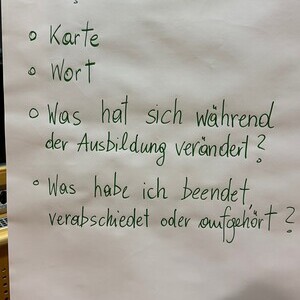 o Karte
o Wort
o Was hat sich während
der Ausbildung verändert?
o Was habe ich beendet,
verabschiedet oder aufgehört?